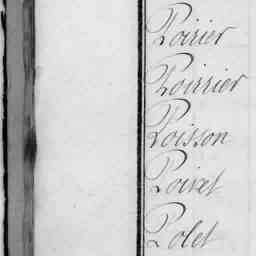 Poirier
Poirrier
Poisson
Poivet
Polet